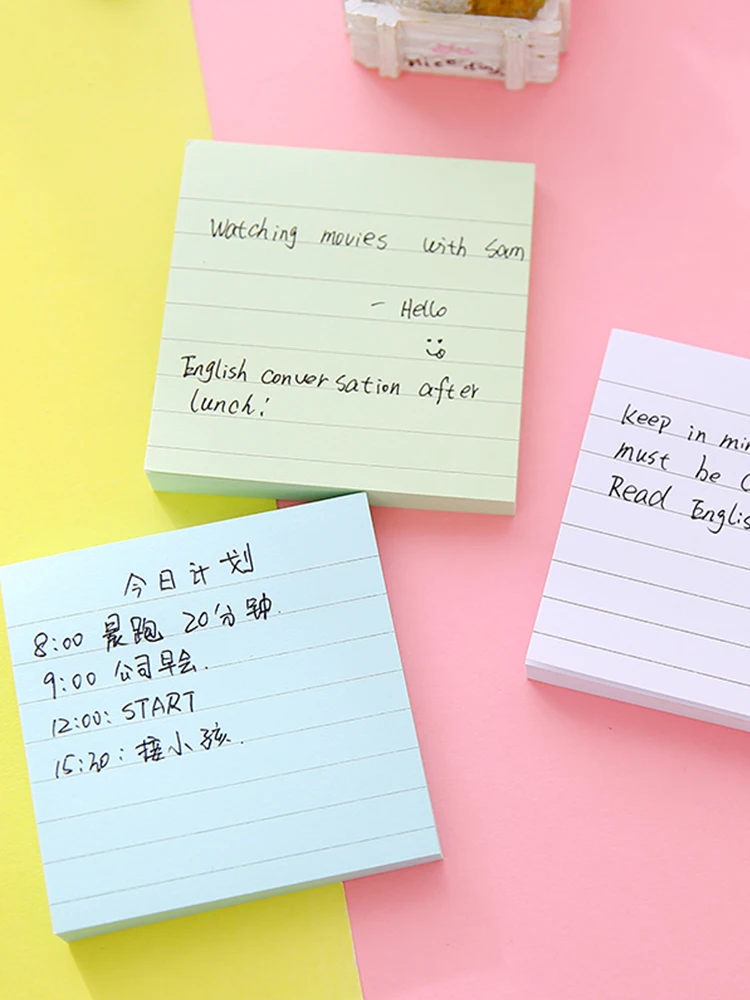 Watching movies with Sam
- Hello
English conversation after
lunch!
Keep in
must be
Read
今日计划
8:00 晨跑 20分钟.
9:00 公司早会.
12:00: START
15:30: 接小孩.